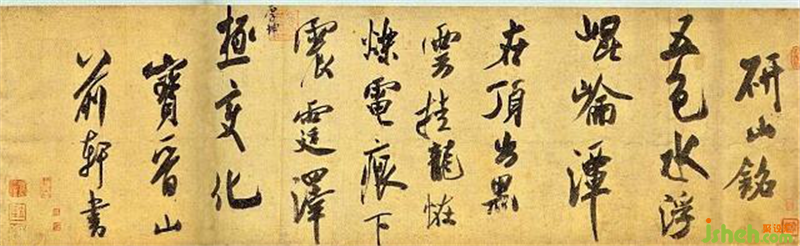 研山銘
五色水浮
崐崘潭
在頂出黑
雲挂龍怪
爍電痕下
震霆澤
極變化
寶晉山
前軒書
jsheh.com